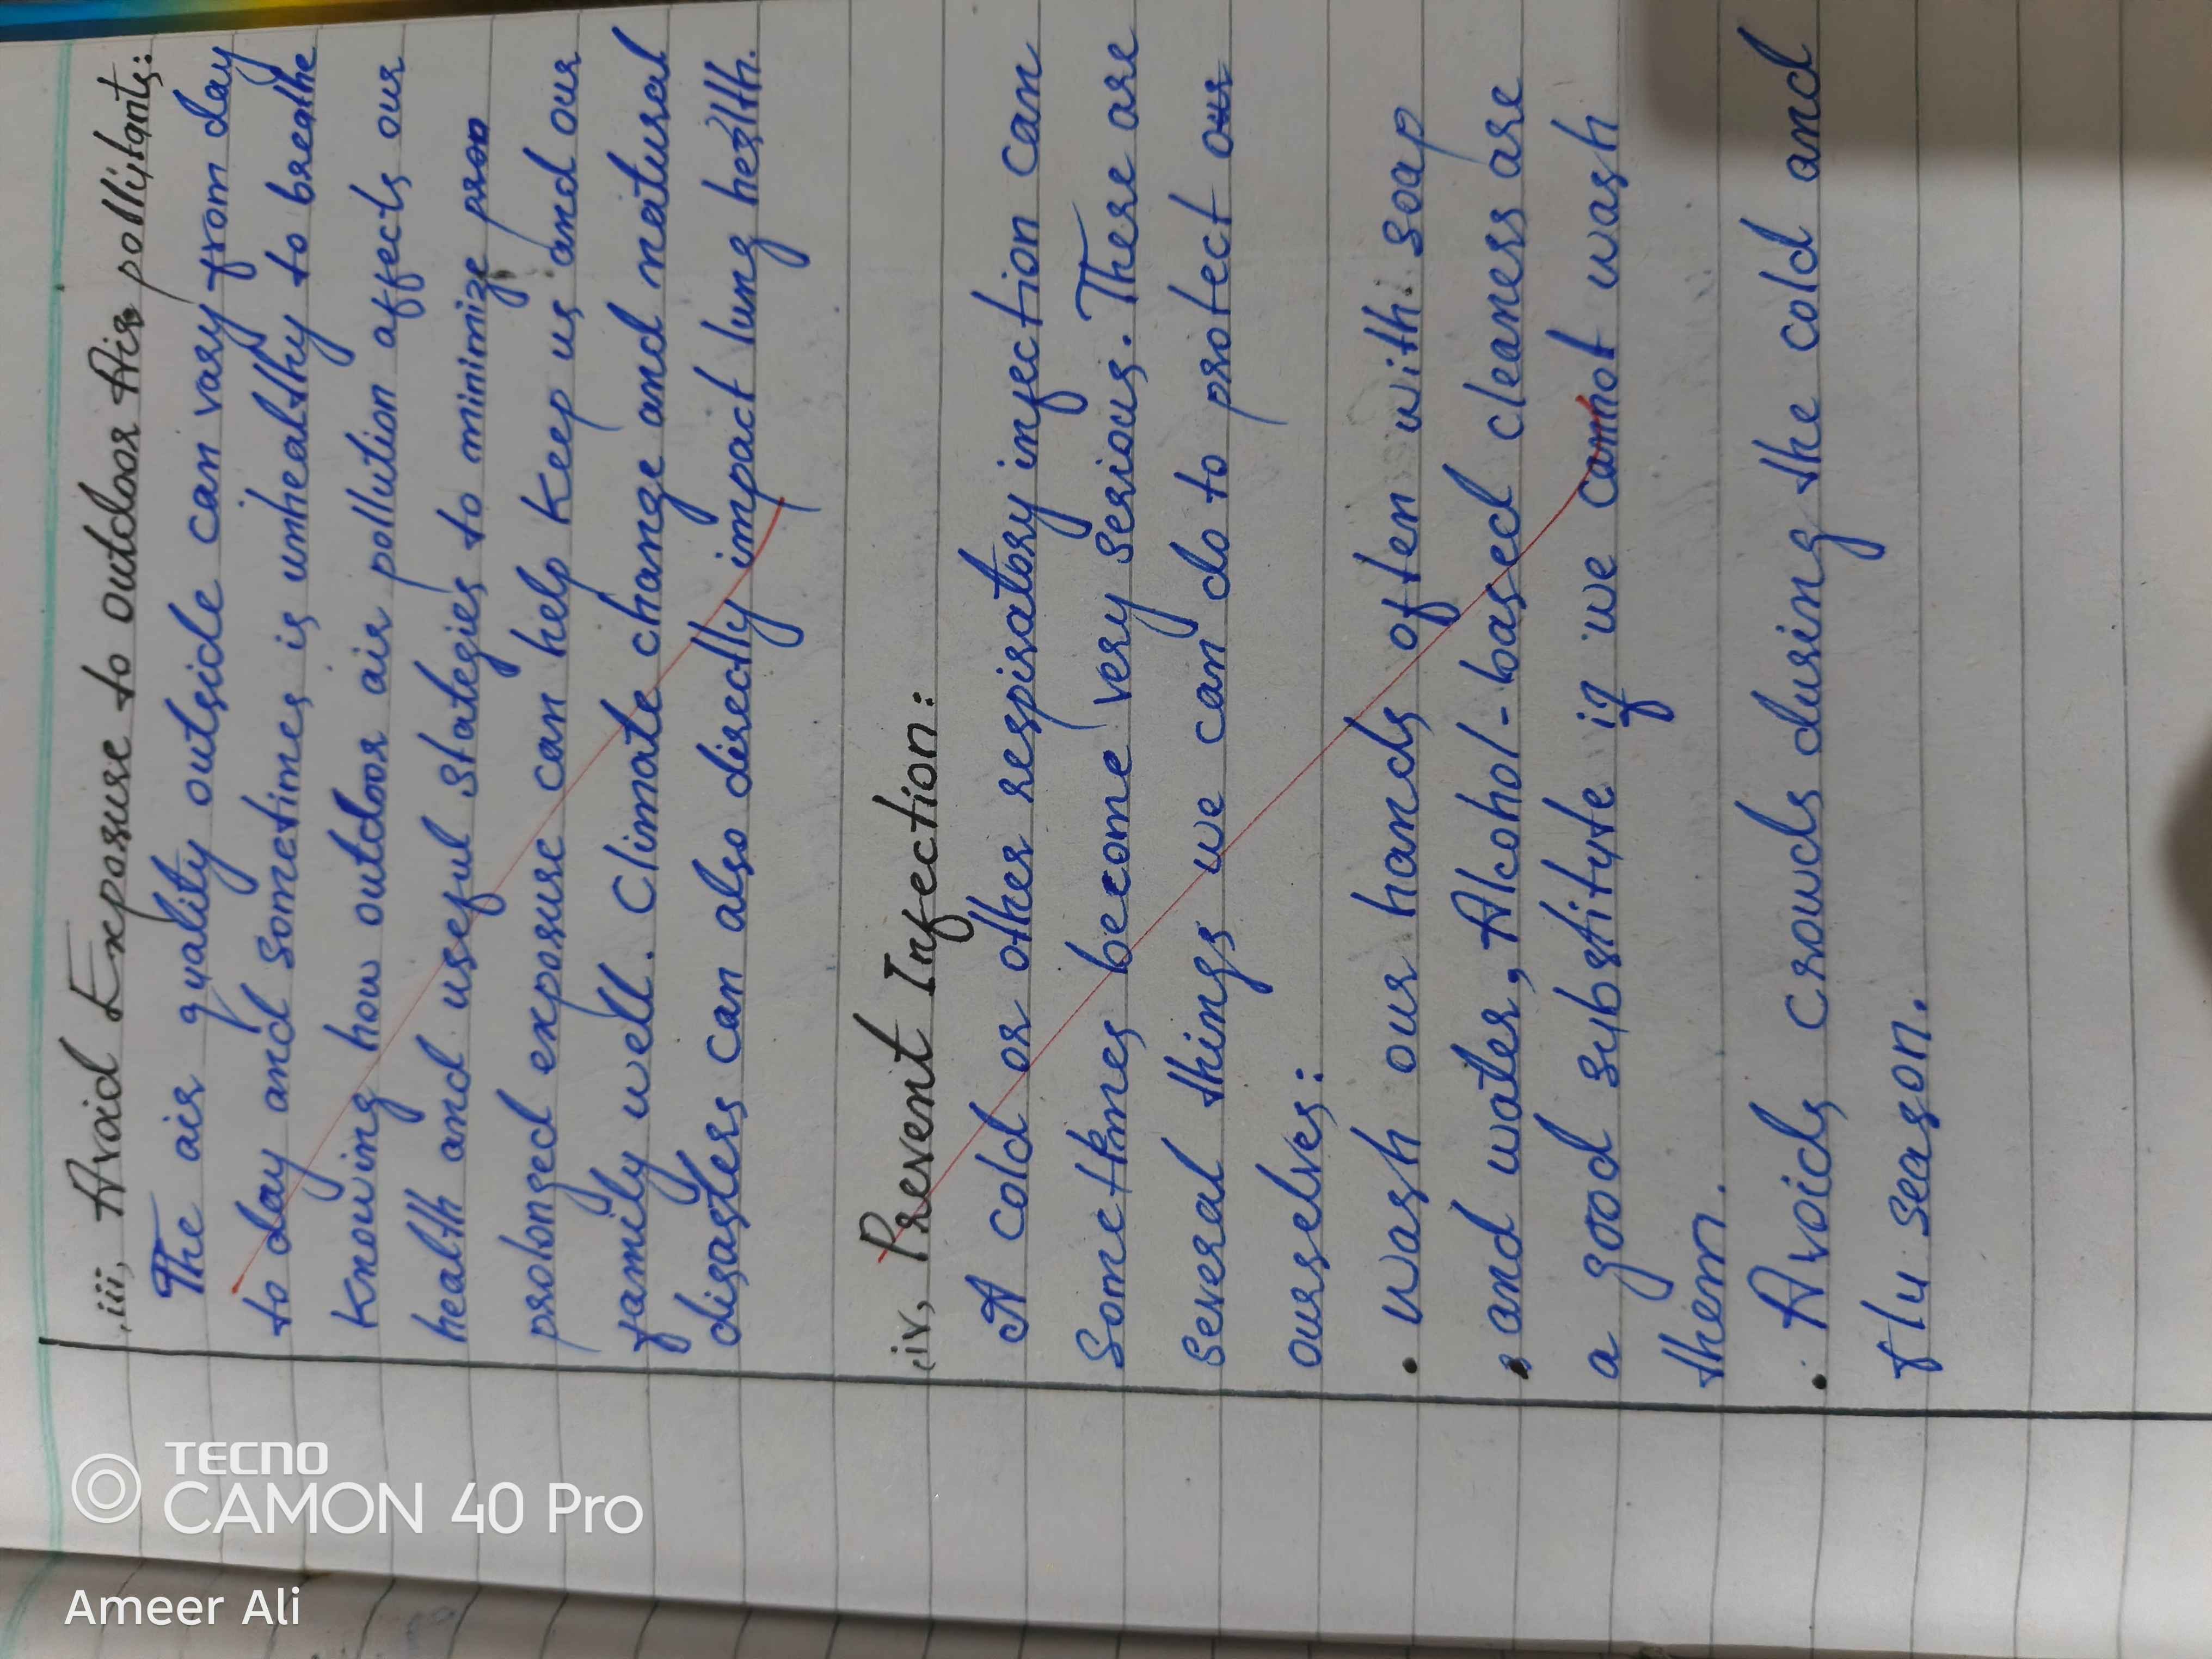 iii, Avoid Exposure to outdoor Air pollutants:
The air quality outside can vary from day
to day and sometimes is unhealthy to breathe
Knowing how outdoor air pollution affects our
health and useful stategies to minimize
prolonged exposure can help keep us and our
family well. Climate change and natural
disasters can also directly impact lung health.
iv, Prevent Infection:
A cold or other respiratory infection can
Sometimes become very serious. There are
several things we can do to protect our
ourselves:
. Wash our hands often with soap
and water, Alcohol-based cleaness are
a good substitute if we cannot wash
them.
. Avoids crowds during the cold and
flu season.
TECNO
CAMON 40 Pro
Ameer Ali